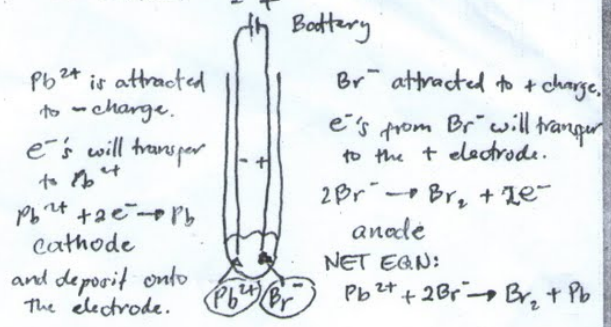 - +
Battery
Pb²⁺ is attracted
to - charge.
e⁻'s will transfer
to Pb²⁺
Pb²⁺ + 2e⁻ → Pb
cathode
and deposit onto
the electrode.
- +
Pb²⁺ Br⁻
Br⁻ attracted to + charge.
e⁻'s from Br⁻ will transfer
to the + electrode.
2Br⁻ → Br₂ + 2e⁻
anode
NET EQN:
Pb²⁺ + 2Br⁻ → Br₂ + Pb